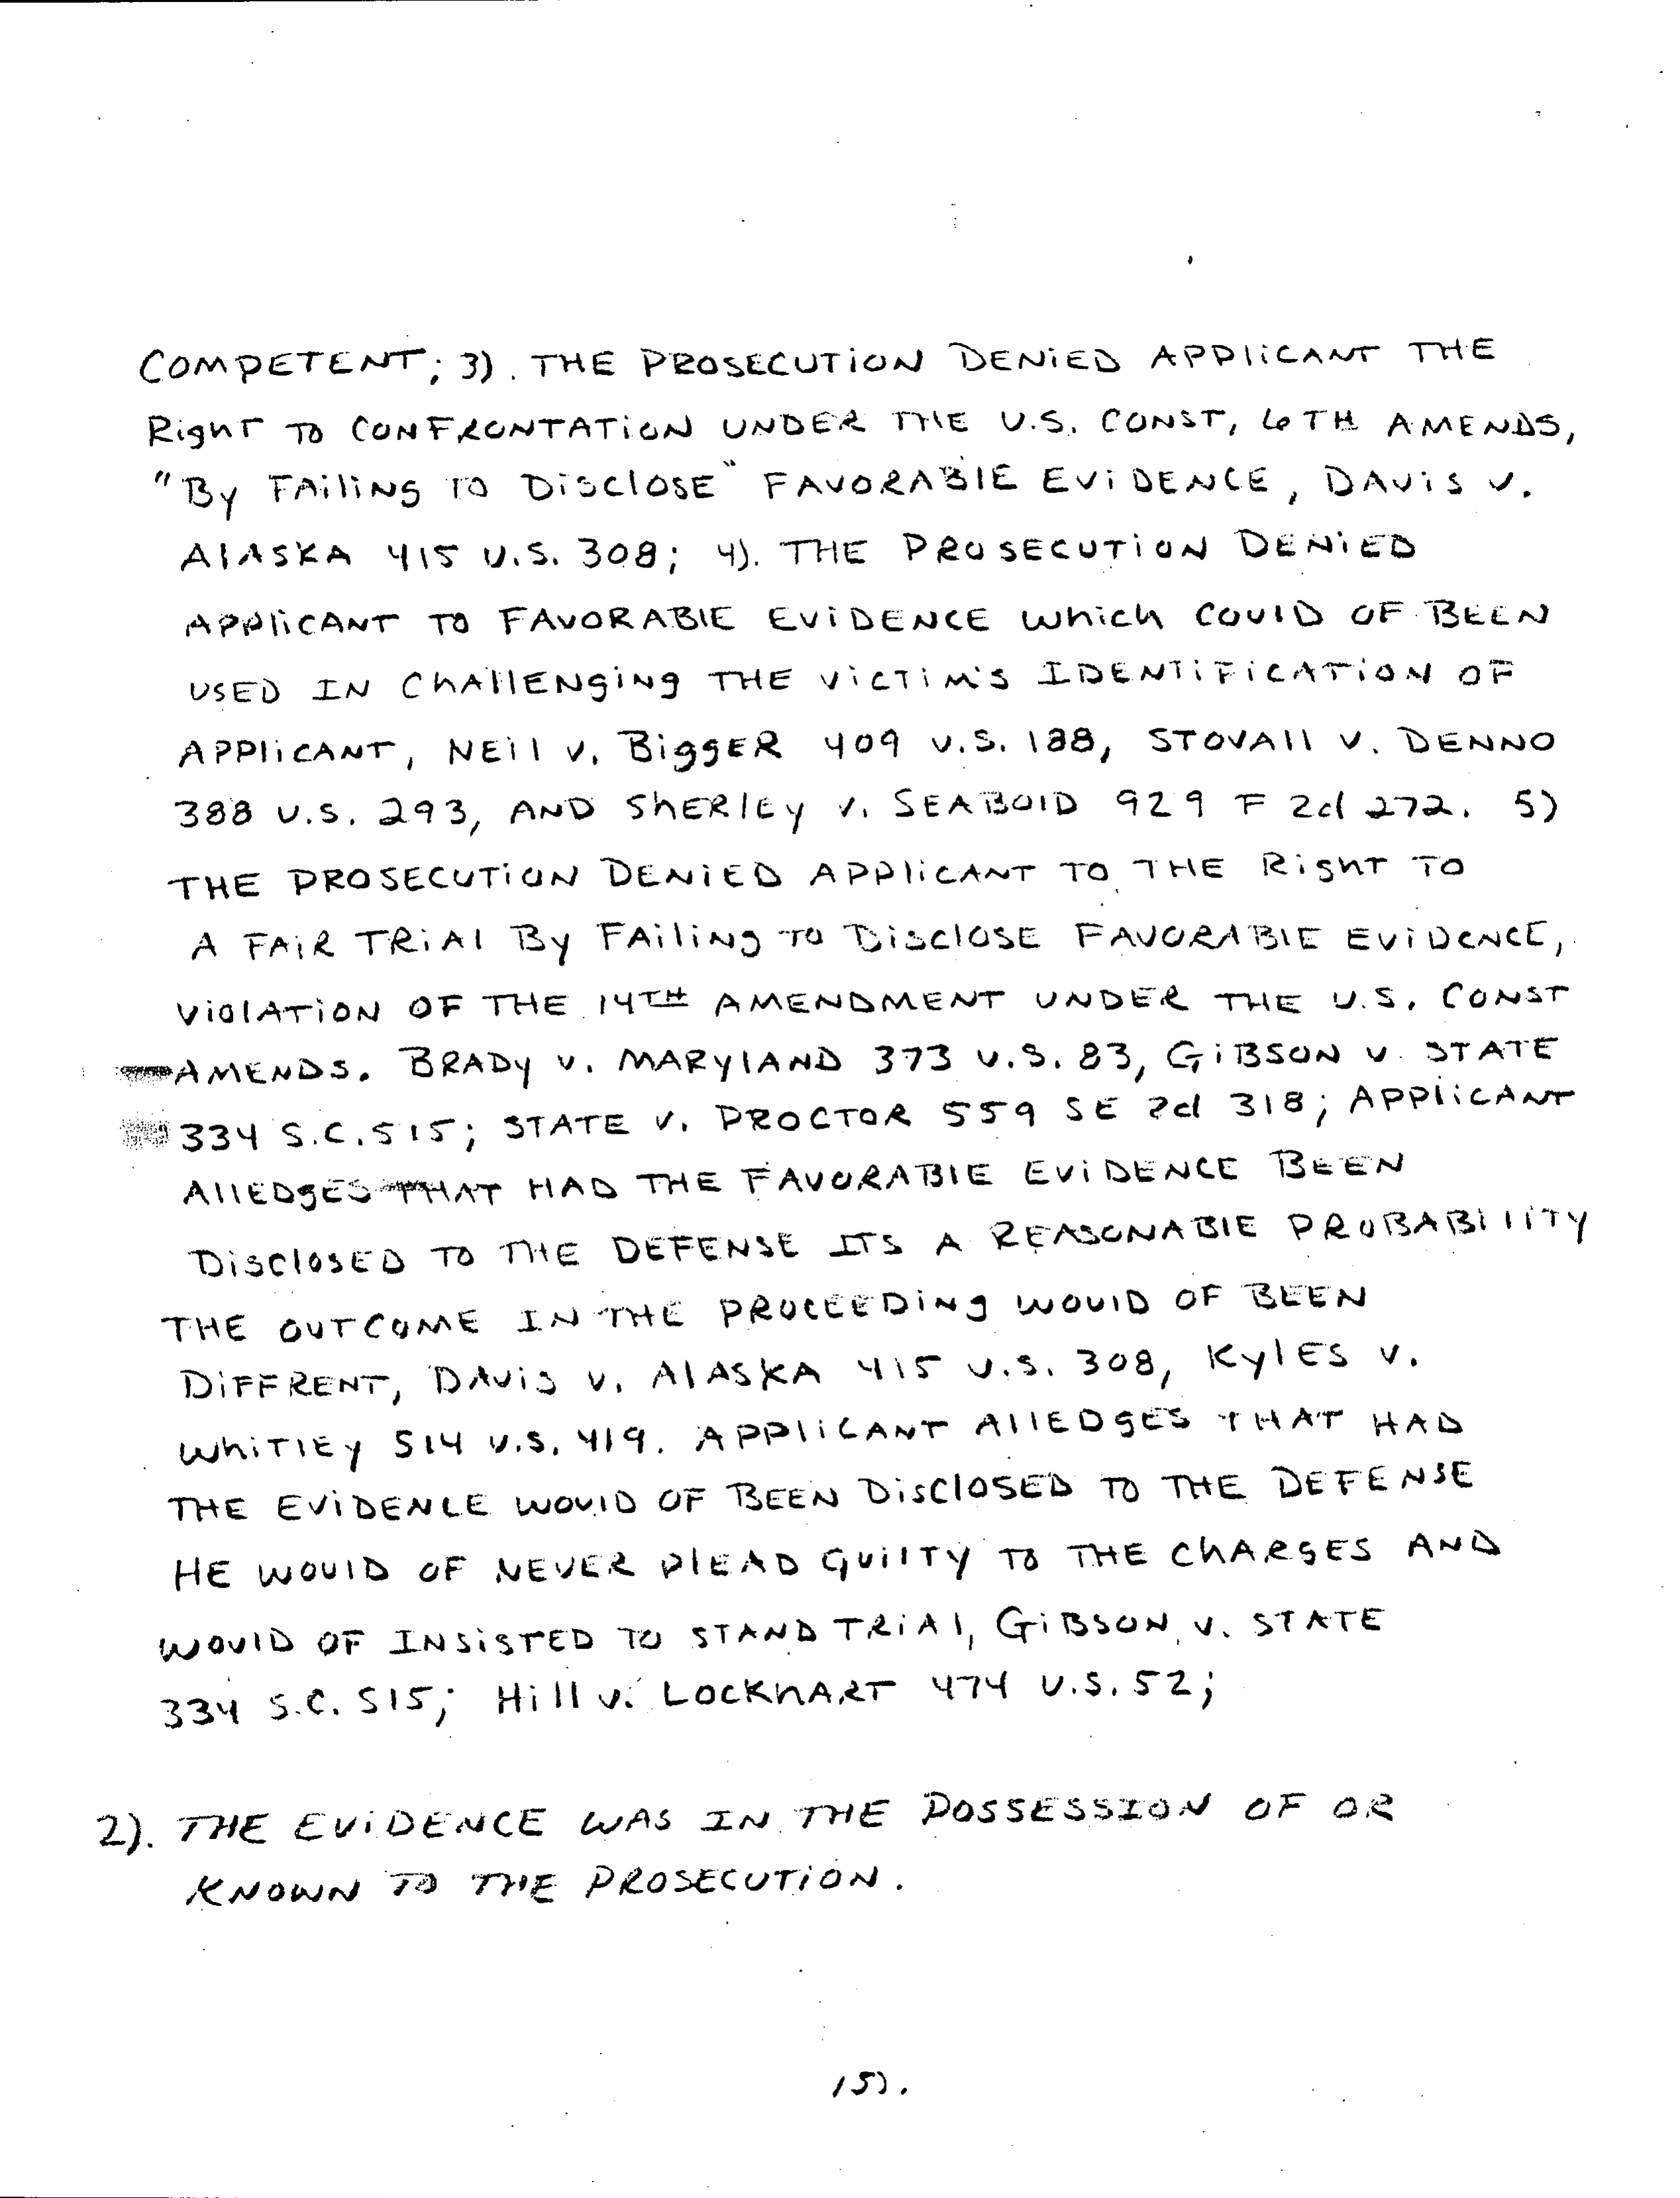 COMPETENT; 3). THE PROSECUTION DENIED APPLICANT THE
Right TO CONFRONTATION UNDER THE U.S. CONST, 6TH AMENDS,
"By FAILING TO DISCLOSE" FAVORABLE EVIDENCE, DAVIS V.
ALASKA 415 U.S. 308; 4). THE PROSECUTION DENIED
APPLICANT TO FAVORABLE EVIDENCE which COULD OF BEEN
USED IN CHALLENGING THE VICTIM'S IDENTIFICATION OF
APPLICANT, NEIL V. BIGGER 409 U.S. 188, STOVALL V. DENNO
388 U.S. 293, AND SHERLEY V. SEABOLD 929 F 2d 272. 5)
THE PROSECUTION DENIED APPLICANT TO THE Right TO
A FAIR TRIAL By FAILING TO DISCLOSE FAVORABLE EVIDENCE,
VIOLATION OF THE 14TH AMENDMENT UNDER THE U.S. CONST
AMENDS. BRADY V. MARYLAND 373 U.S. 83, GIBSON V. STATE
334 S.C. 515; STATE V. PROCTOR 559 SE 2d 318; APPLICANT
ALLEDGES THAT HAD THE FAVORABLE EVIDENCE BEEN
DISCLOSED TO THE DEFENSE ITS A REASONABLE PROBABILITY
THE OUTCOME IN THE PROCEEDING WOULD OF BEEN
DIFFRENT, DAVIS V. ALASKA 415 U.S. 308, KYLES V.
WHITLEY 514 U.S. 419. APPLICANT ALLEDGES THAT HAD
THE EVIDENCE WOULD OF BEEN DISCLOSED TO THE DEFENSE
HE WOULD OF NEVER PLEAD GUILTY TO THE CHARGES AND
WOULD OF INSISTED TO STAND TRIAL, GIBSON V. STATE
334 S.C. 515; Hill V. LOCKHART 474 U.S. 52;
2). THE EVIDENCE WAS IN THE POSSESSION OF OR
KNOWN TO THE PROSECUTION.
15).